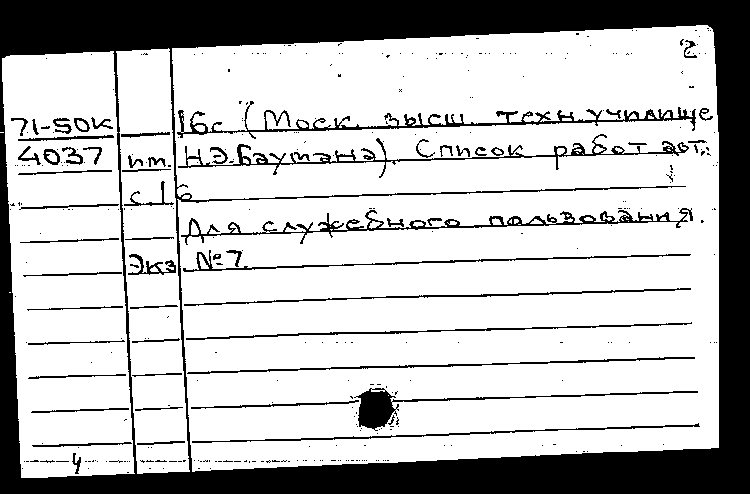 2
71-50К 16с (Моск. высш. техн. училище
4037 им. Н.Э.Баумана). Список работ авт.:
с. 16
Для служебного пользования.
Экз. №7.
4